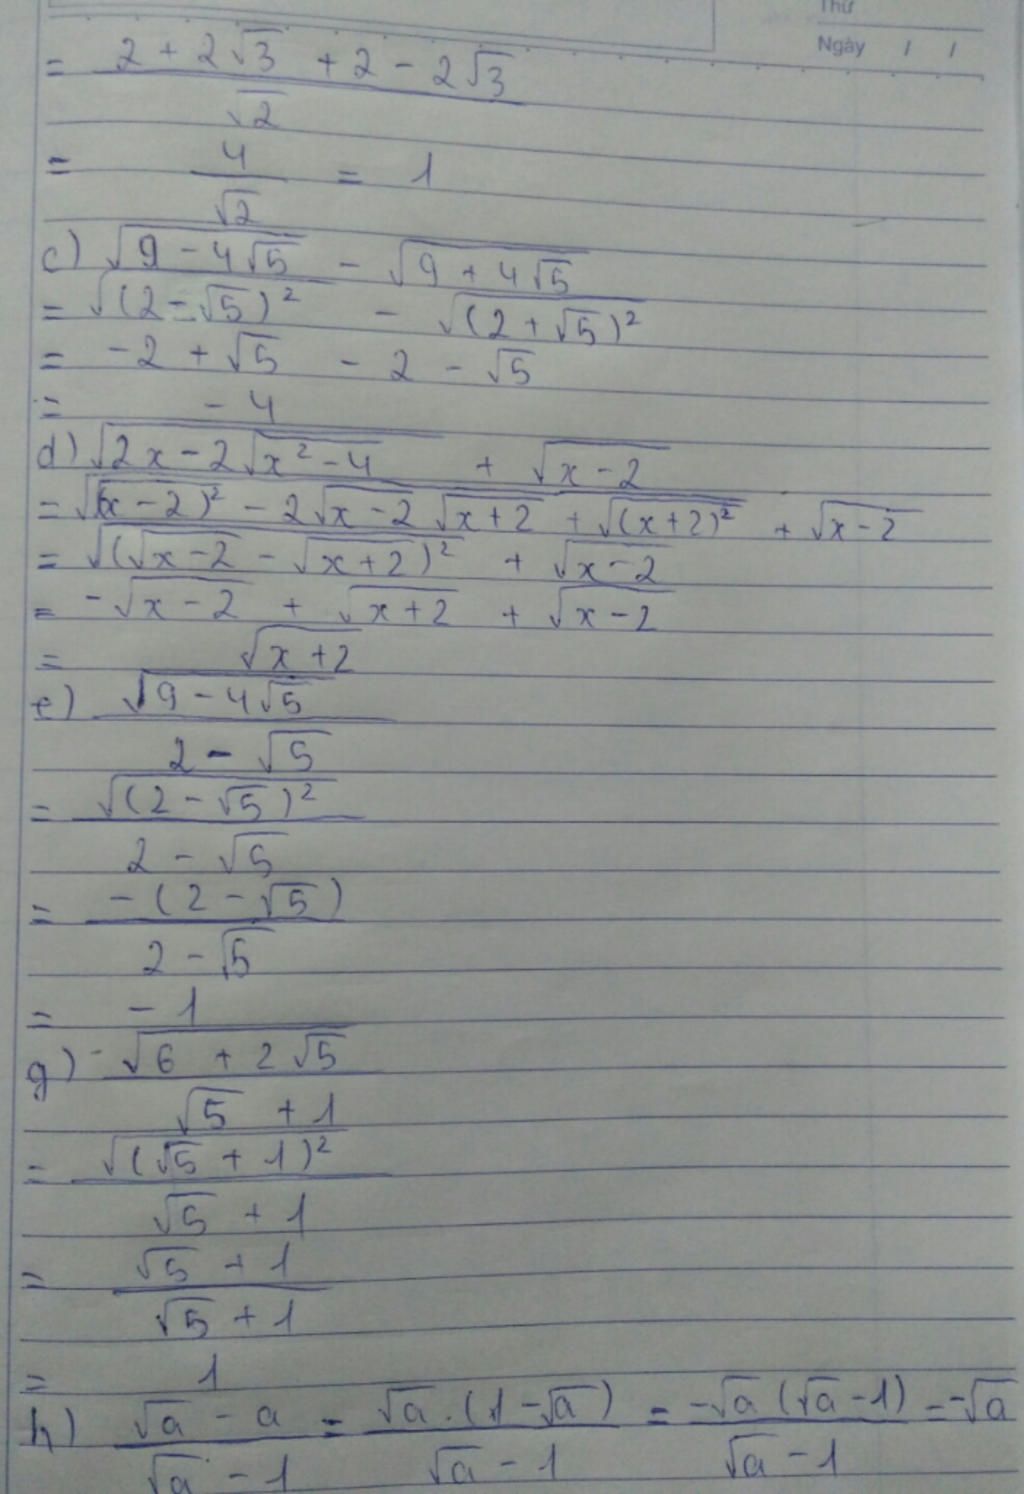 Thứ
Ngày / /
= (2 + 2√3 + 2 - 2√3)/√2
= 4/√2 = 1
c) √(9 - 4√5) - √(9 + 4√5)
= √((2 - √5)²) - √((2 + √5)²)
= -2 + √5 - 2 - √5
= -4
d) √(2x - 2√(x² - 4)) + √(x - 2)
= √(√((x - 2)²) - 2√(x - 2) √(x + 2) + √((x + 2)²)) + √(x - 2)
= √((√(x - 2) - √(x + 2))²) + √(x - 2)
= -√(x - 2) + √(x + 2) + √(x - 2)
= √(x + 2)
e) √(9 - 4√5)/(2 - √5)
= √((2 - √5)²)/(2 - √5)
= -(2 - √5)/(2 - √5)
= -1
g) √(6 + 2√5)/(√5 + 1)
= √((√5 + 1)²)/(√5 + 1)
= (√5 + 1)/(√5 + 1)
= 1
h) (√a - a)/(√a - 1) = √a.(1 - √a)/(√a - 1) = -√a(√a - 1)/(√a - 1) = -√a